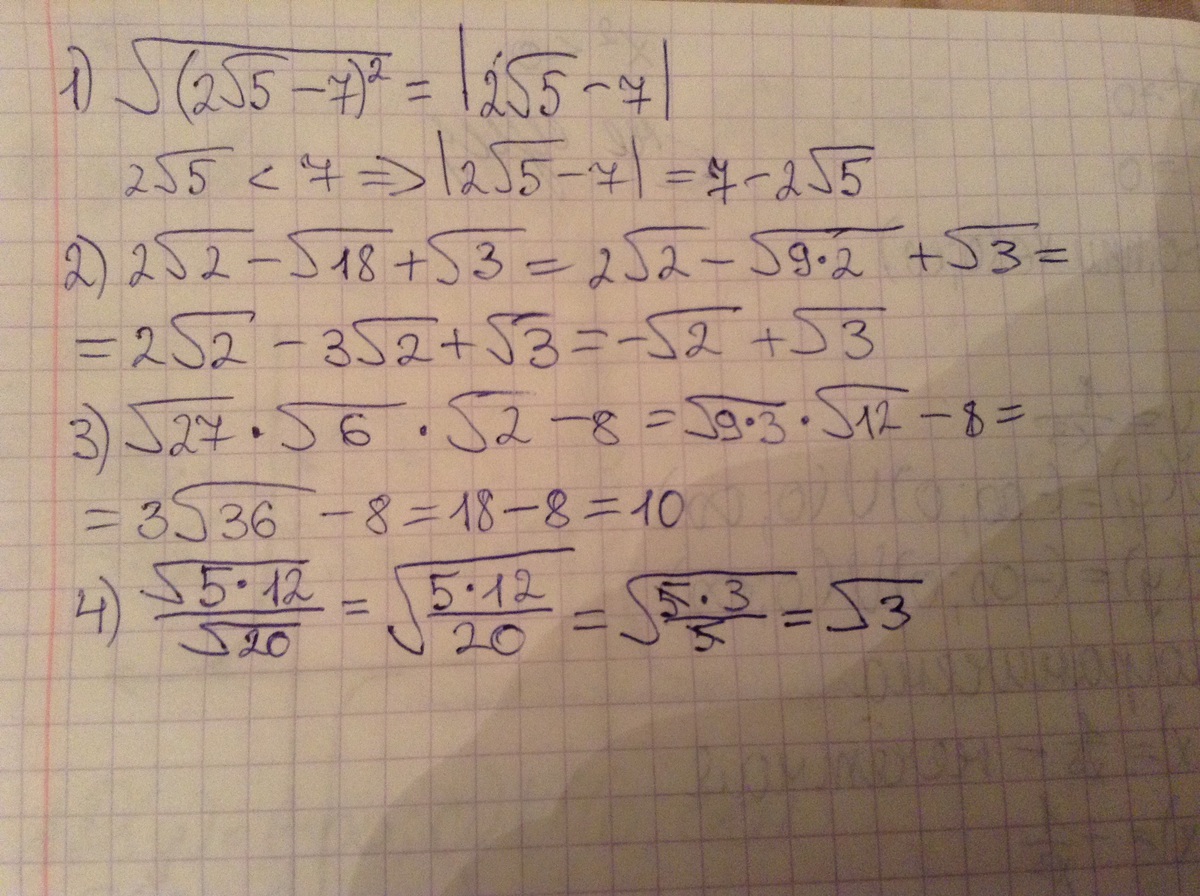 1) √(2√5 − 7)² = |2√5 − 7|
2√5 < 7 ⇒ |2√5 − 7| = 7 − 2√5
2) 2√2 − √18 + √3 = 2√2 − √9·2 + √3 =
= 2√2 − 3√2 + √3 = −√2 + √3
3) √27 · √6 · √2 − 8 = √9·3 · √12 − 8 =
= 3√36 − 8 = 18 − 8 = 10
4) √5·12 / √20 = √(5·12 / 20) = √(5·3 / 5) = √3